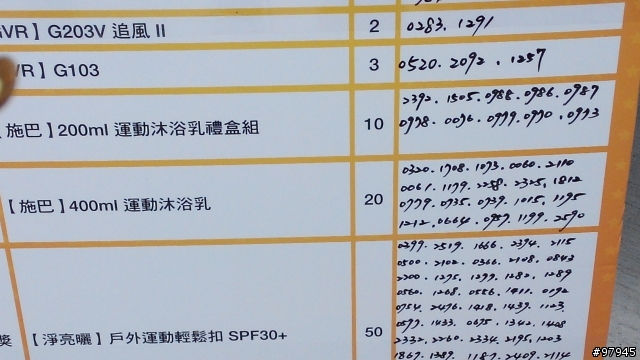 GVR】G203V 追風 II 2 0283. 1291
VR】G103 3 0520. 2092. 1257
【施巴】200ml 運動沐浴乳禮盒組 10 2392. 1505. 0988. 0986. 0987
0978. 0096. 0999. 0990. 0993
【施巴】400ml 運動沐浴乳 20 0320. 1708. 1073. 0060. 2110
0061. 1179. 2258. 2325. 1812
0779. 0735. 0739. 1015. 1195
1212. 0664. 0959. 1199. 2590
獎 【淨亮曬】戶外運動輕鬆扣 SPF30+ 50 0299. 2519. 1666. 2394. 2115
0500. 2102. 0366. 2108. 0843
2200. 1295. 1299. 1282. 1289
0560. 1268. 0556. 1411. 0192
0754. 2476. 1418. 1439. 1123
0599. 1433. 0675. 1342. 1408
2332. 2260. 2334. 2195. 1203
1867. 1389. 1187. 2409. 2114
#97945